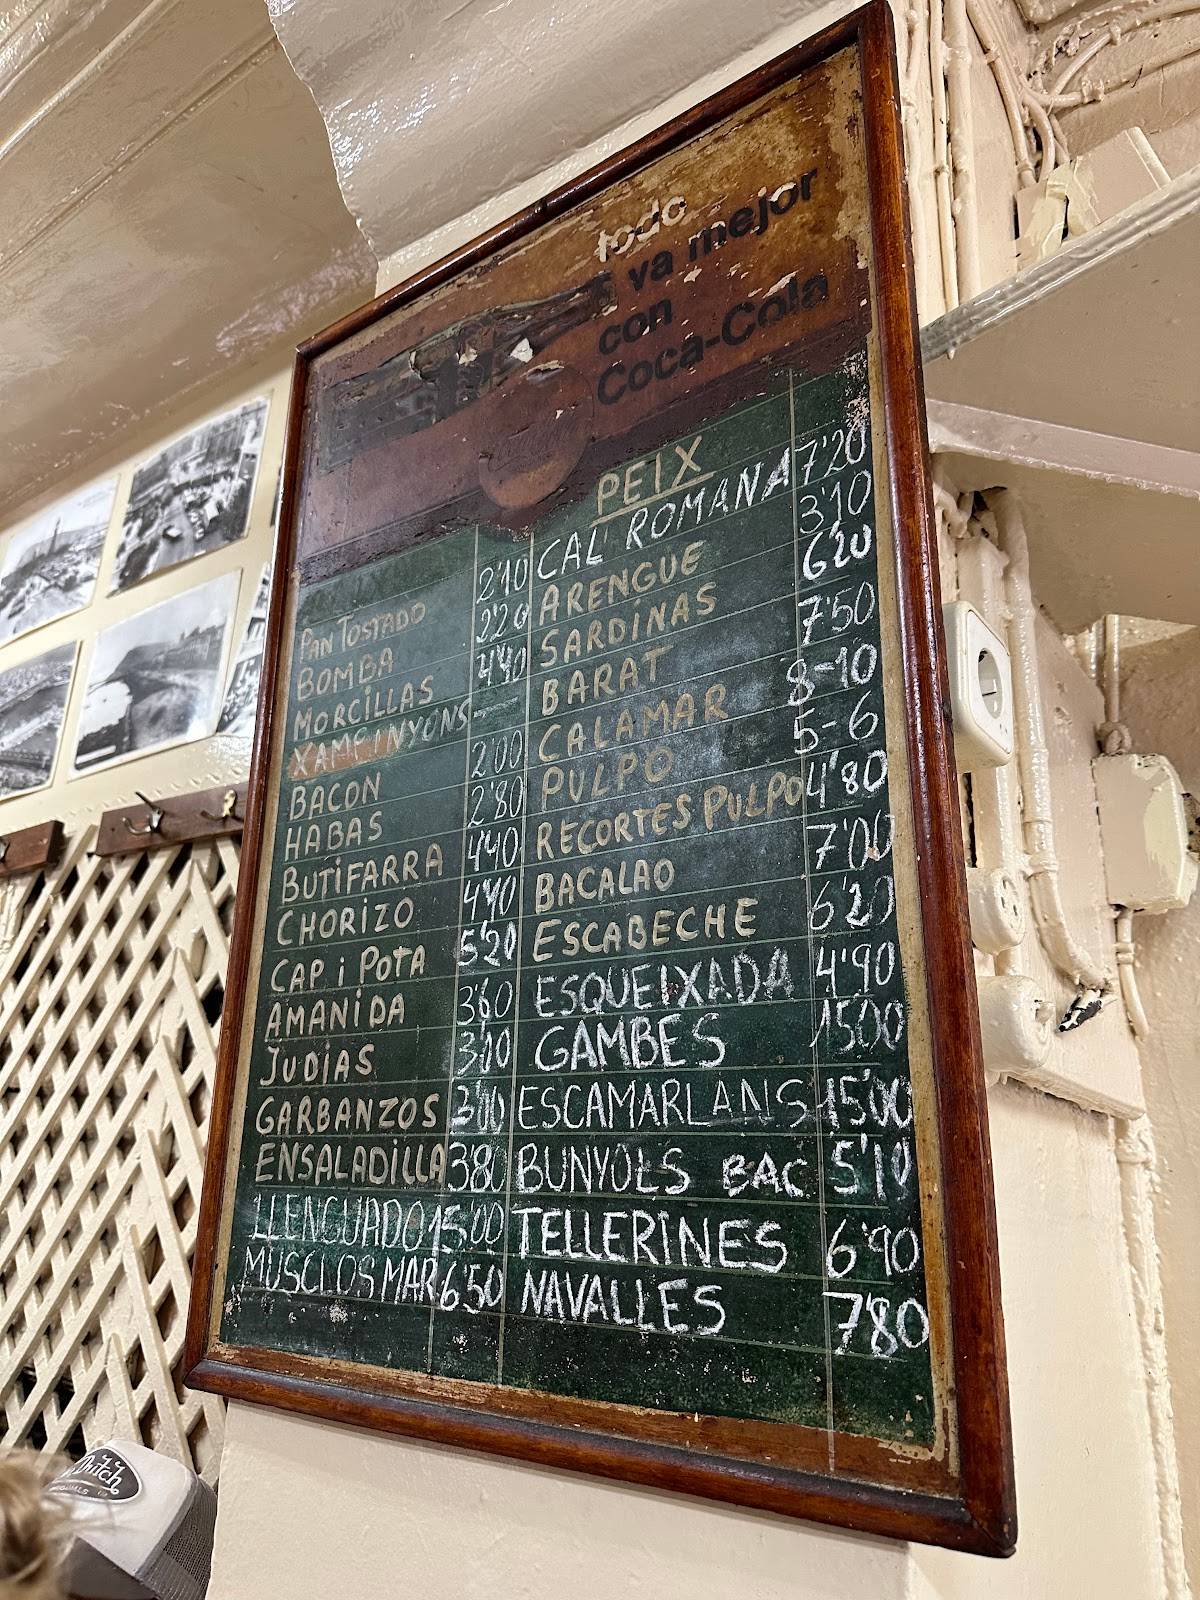 todo
va mejor
con
Coca-Cola
PAN TOSTADO 2'10
BOMBA 2'20
MORCILLAS 4'40
XAMPINYONS —
BACON 2'00
HABAS 2'80
BUTIFARRA 4'40
CHORIZO 4'40
CAP i POTA 5'20
AMANIDA 3'60
JUDIAS 3'00
GARBANZOS 3'00
ENSALADILLA 3'80
LLENGUADO 15'00
MUSCLOS MAR 6'50
PEIX
CAL' ROMANA 7'20
ARENGUE 3'10
SARDINAS 6'20
BARAT 7'50
CALAMAR 8-10
PULPO 5-6
RECORTES PULPO 4'80
BACALAO 7'00
ESCABECHE 6'20
ESQUEIXADA 4'90
GAMBES 15'00
ESCAMARLANS 15'00
BUNYOLS BAC 5'10
TELLERINES 6'90
NAVALLES 7'80